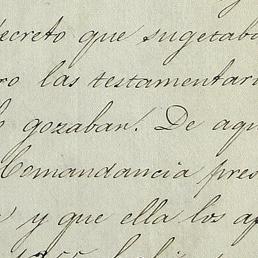 decreto que sugetaba
ro las testamentari
gozaban. De aqu
Comandancia pres
y que ella los ap